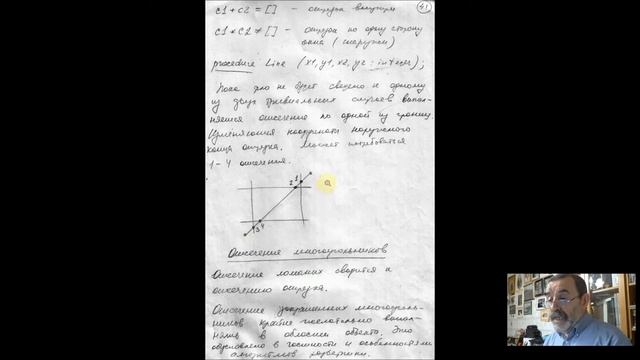 41
c1 + c2 = [] - отрезок внутри
c1 * c2 ≠ [] - отрезок по одну сторону
окна (снаружи)
procedure Line (x1, y1, x2, y2 : integer);
Пока это не будет сведено к одному
из двух тривиальных случаев выпол-
няется отсечение по одной из границ.
Изменяются координаты наружного
конца отрезка. Может потребоваться
1-4 отсечения.
1
2
3 4
Отсечение многоугольников
Отсечение ломаных сводится к
отсечению отрезка.
Отсечение закрашенных многоуголь-
ников крайне желательно выпол-
нять в области объекта. Это
обусловлено в частности и особенностями
алгоритмов развертки.